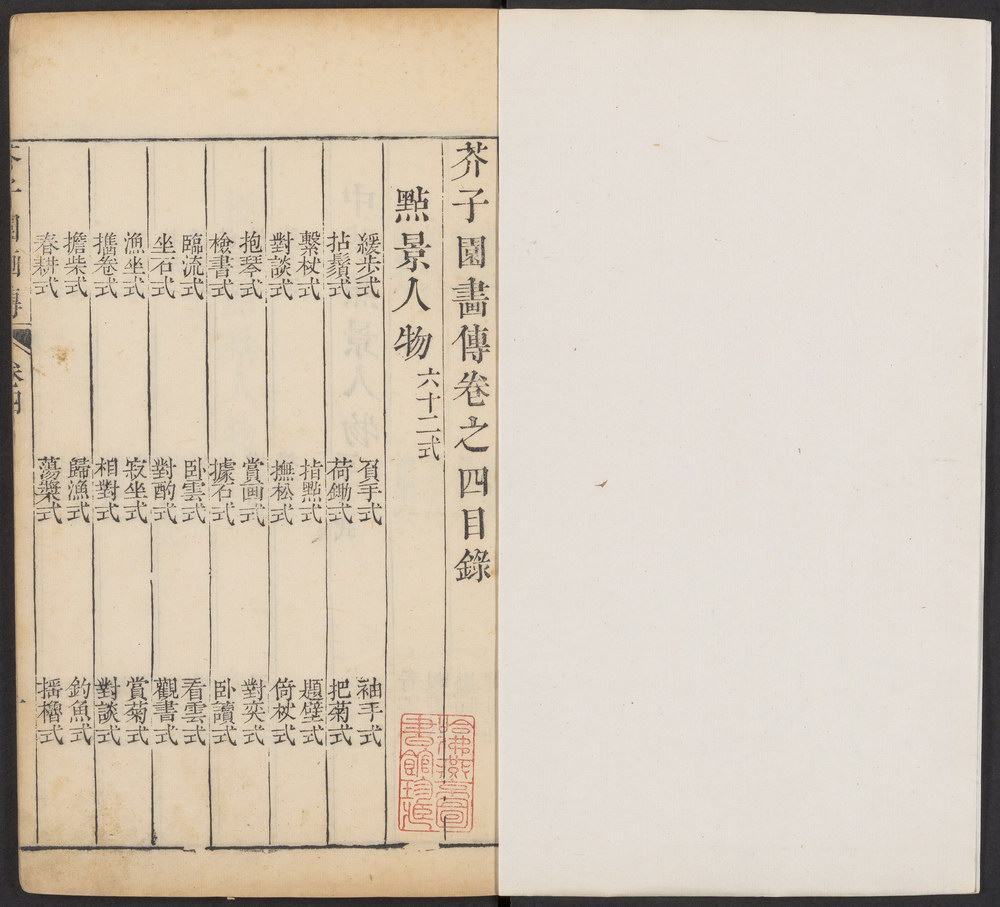 芥子園畫傳卷之四目錄
點景人物 六十二式
緩步式 負手式 袖手式
拈鬚式 荷鋤式 把菊式
繫杖式 指點式 題壁式
對談式 撫松式 倚杖式
抱琴式 賞画式 對奕式
檢書式 據石式 卧讀式
臨流式 卧雲式 看雲式
坐石式 對酌式 觀書式
漁坐式 寂坐式 賞菊式
擕卷式 相對式 對談式
擔柴式 歸漁式 釣魚式
春耕式 蕩槳式 播櫓式
芥子園畫傳 卷四 一
哈佛燕京圖
書館珍藏